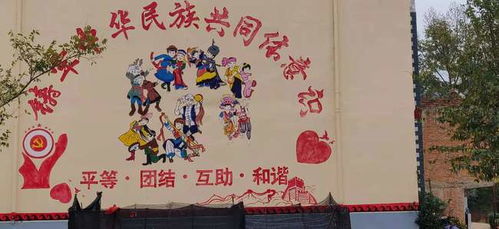 铸牢中华民族共同体意识
平等·团结·互助·和谐